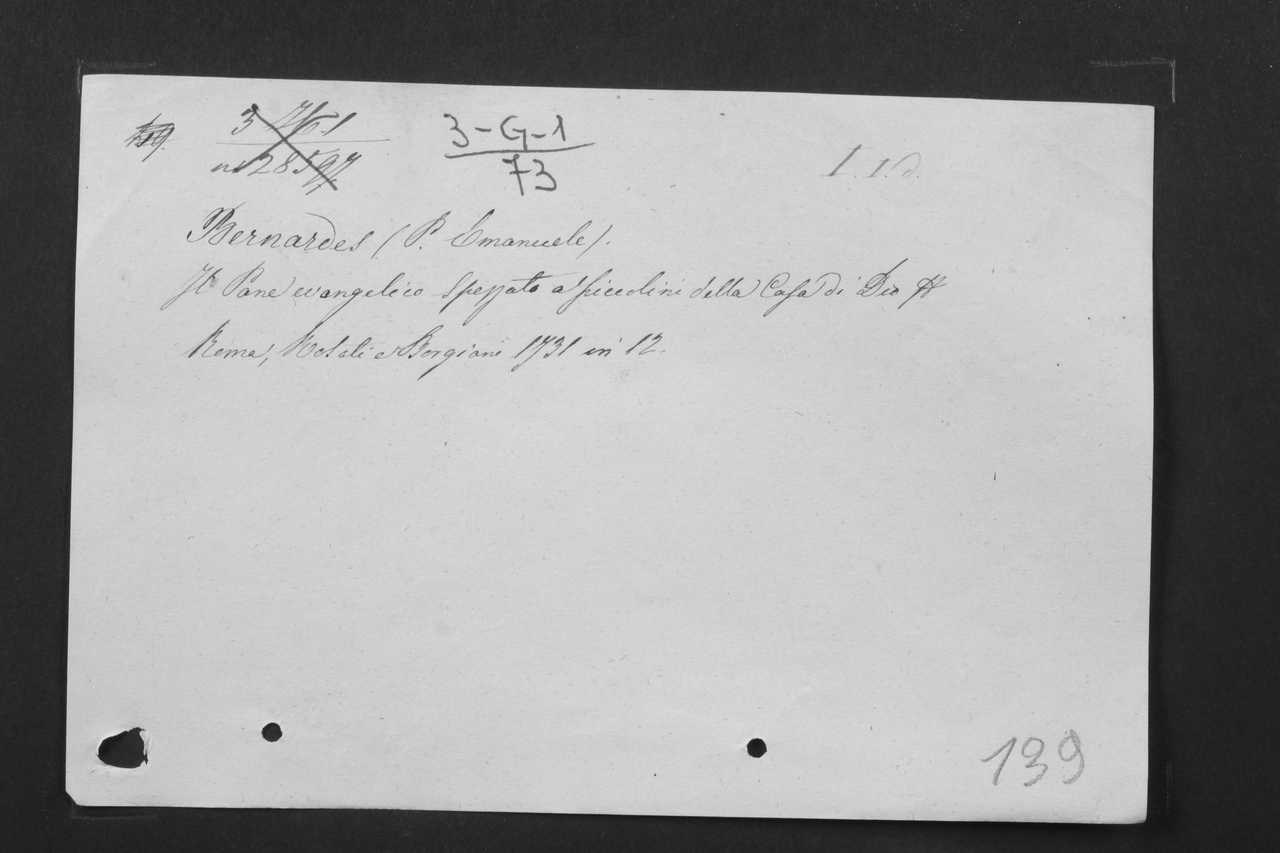 3 761
n° 28597
3-G-1
73
I. 1. d.
Bernardes (P. Emanuele).
Il Pane evangelico spezzato a' piccolini della Casa di Dio
Roma, e Borgiani 1731 in 12.
139